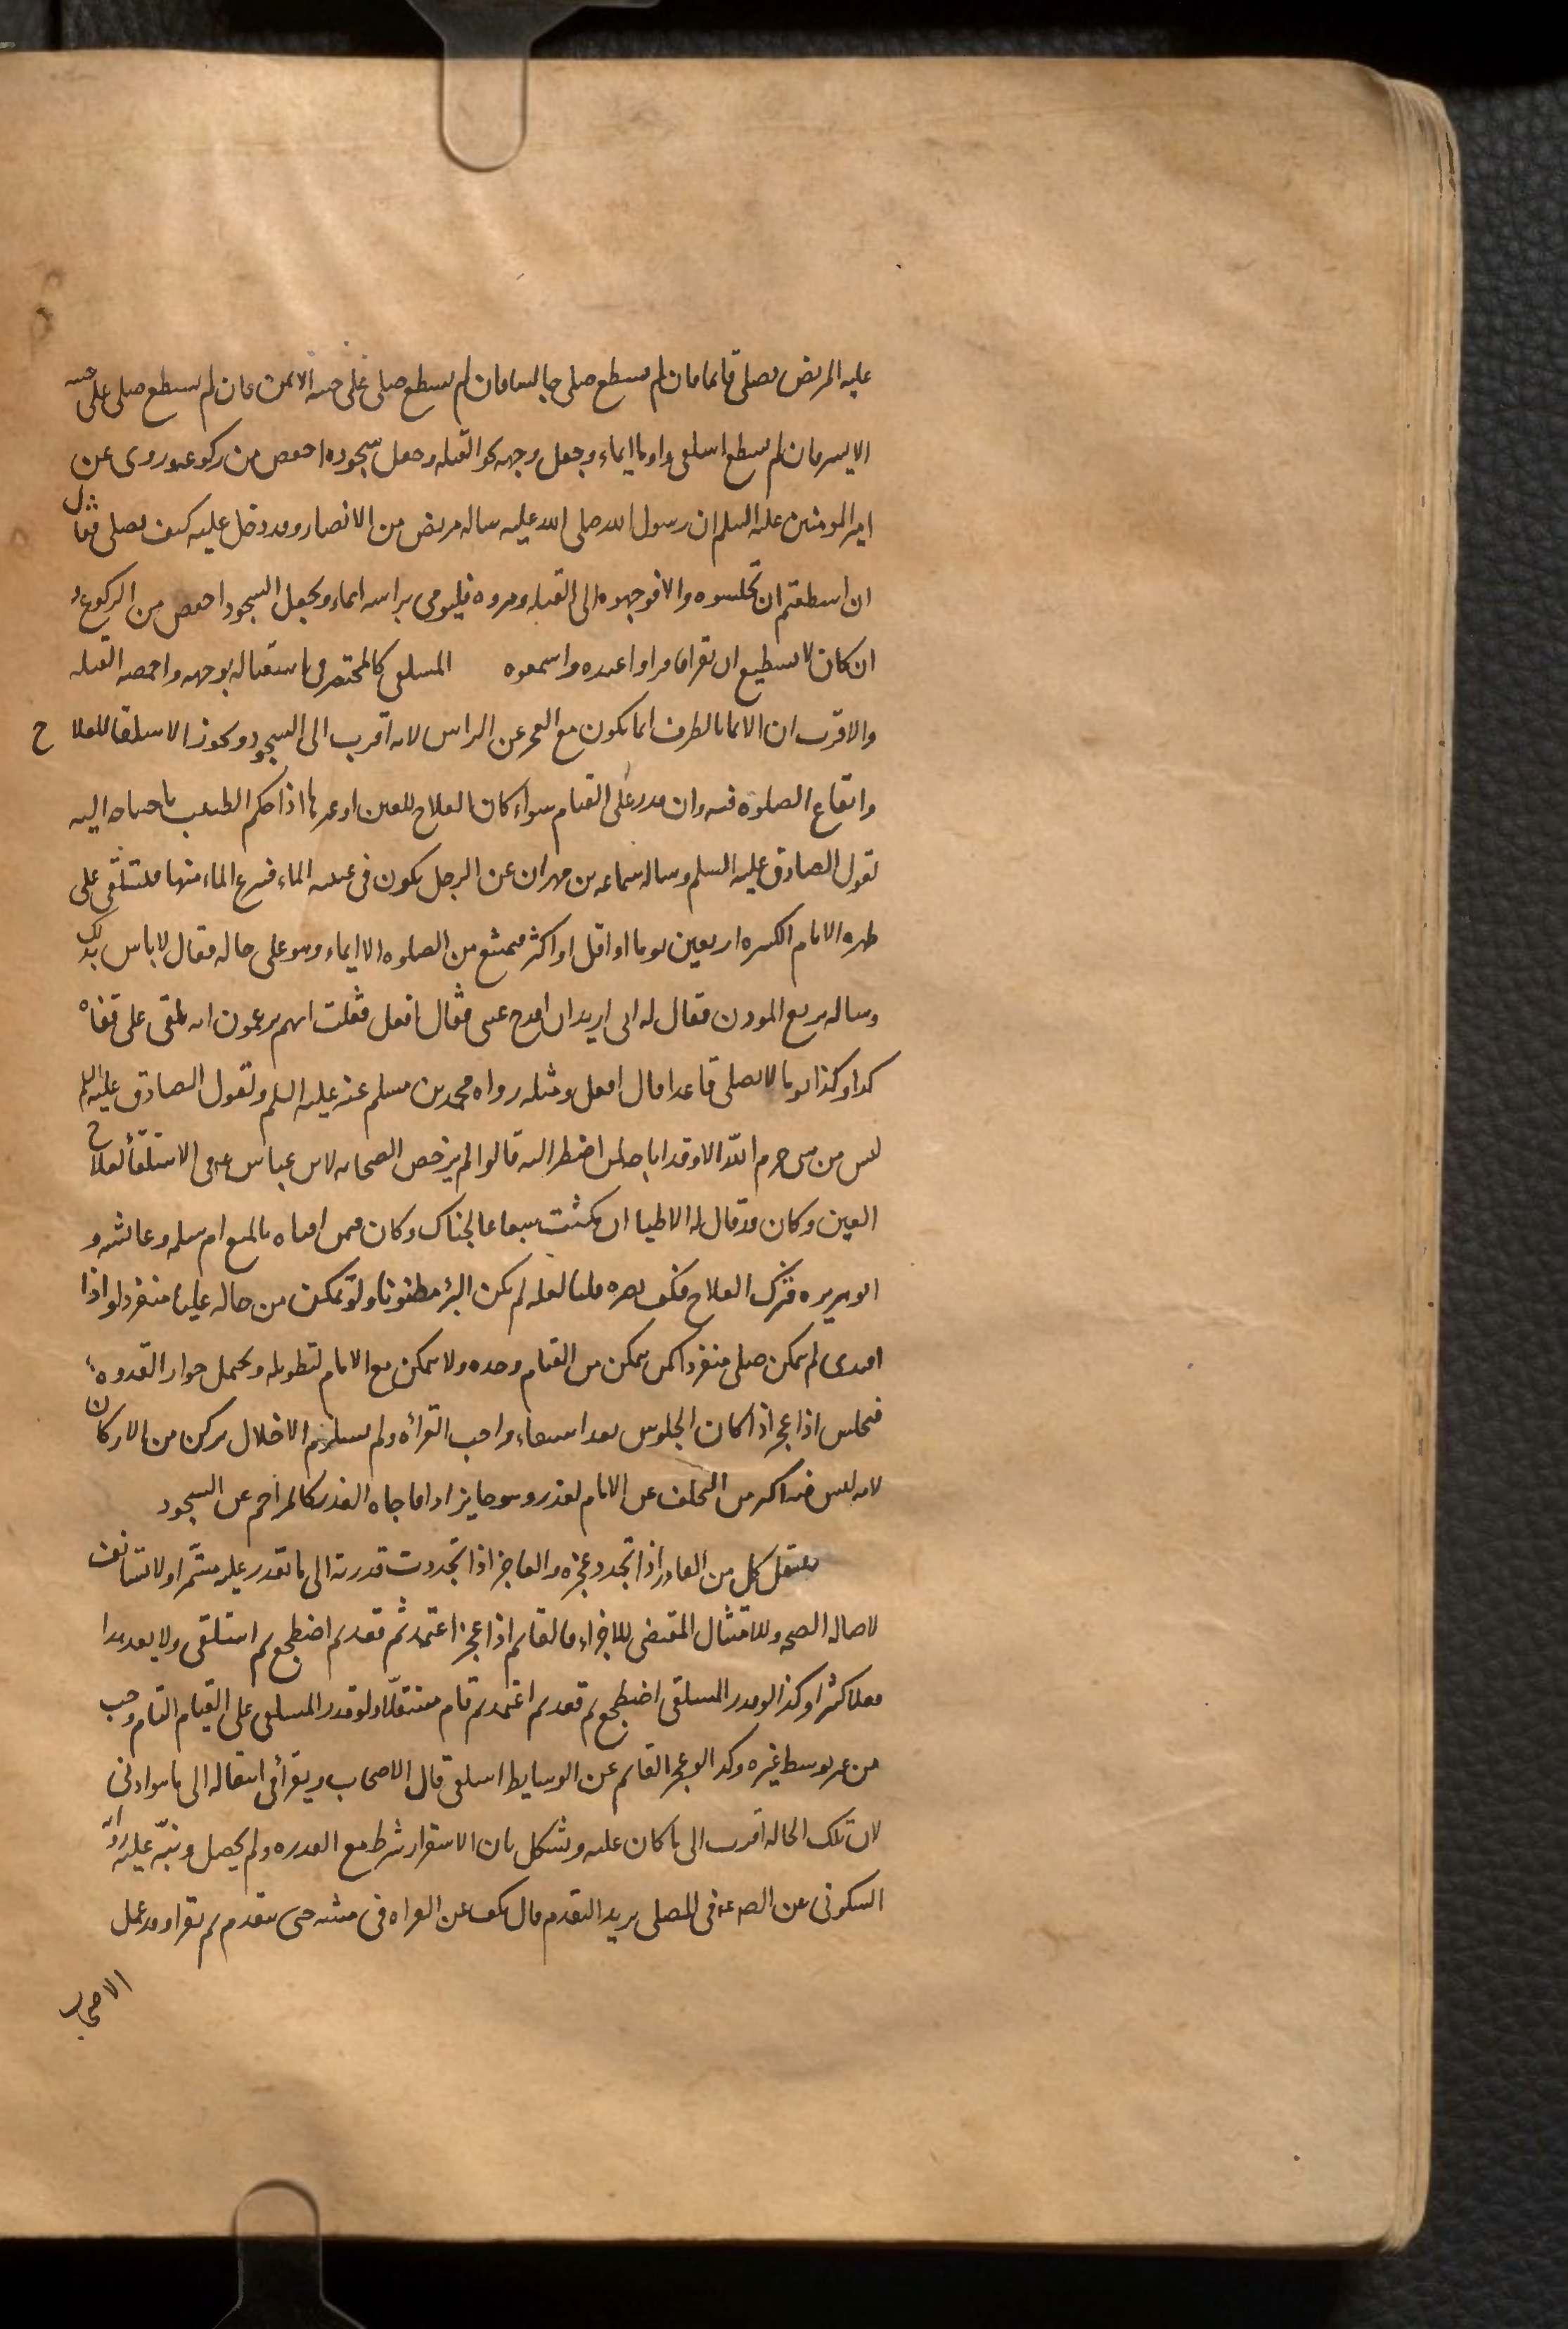 عليه المريض يصلي قائما فان لم يستطع صلى جالسا فان لم يستطع صلى على جنبه الايمن فان لم يستطع صلى على جنبه
الايسر فان لم يستطع استلقى واومأ ايماء وجعل وجهه نحو القبله وجعل سجوده اخفض من ركوعه وروى عن
امير المومنين عليه السلم ان رسول الله صلى الله عليه ساله مريض من الانصار وقد دخل عليه كيف يصلي فقال
ان اسطعتم ان تجلسوه والا فوجهوه الى القبله ومروه فليومى براسه ايماء ويجعل السجود اخفض من الركوع و
ان كان لا يستطيع ان يقرا فاقراوا عنده واسمعوه المستلقي كالمحتضر في استقباله بوجهه واخمصه القبله
والاقرب ان الايما بالطرف انما يكون مع العجز عن الراس لانه اقرب الى السجود ويجوز الاستلقا للعلاج
وايقاع الصلوة فيه وان قدر على القيام سواء كان العلاج للعين او غيرها اذا حكم الطبيب باحتياجه اليه
لقول الصادق عليه السلم وساله سماعه بن مهران عن الرجل يكون في عينيه الماء فينزع الماء منها فيستلقي على
ظهره الايام الكثيره اربعين يوما او اقل او اكثر فيمتنع من الصلوه الا ايماء وهو على حاله فقال لا باس بذلك
وساله بزيع الموذن فقال له اني اريد ان اقدح عيني فقال افعل فقلت انهم يزعمون انه يلقى على قفاه
كذا وكذا يوما لا يصلي قاعدا قال افعل ومثله رواه محمد بن مسلم عنه عليه السلم ولقول الصادق عليه السلم
ليس من شى حرم الله الا وقد اباحه لمن اضطر اليه قالوا لم يرخص الصحابه لابن عباس رض في الاستلقأ لعلاج
العين وكان قد قال له الاطبا ان مكثت سبعا عالجناك وكان ممن افتاه بالمنع ام سلمه وعائشه و
ابو هريره فترك العلاج فكف بصره قلنا لعله لم يكن البرُ مظنونا ولو تمكن من حاله عليا منفردا واذا
اقتدى لم يتمكن صلى منفردا كمن يتمكن من القيام وحده ولا يتمكن مع الامام لتطويله ويحتمل جواز القدوه
فيجلس اذا عجز اذا كان الجلوس بعد استيفاء واجب القرأه ولم يستلزم الاخلال بركن من الاركان
لانه ليس فيه اكثر من التخلف عن الامام لعذر وهو جايز اذا فاجاه العذر كالمزاحم عن السجود
ينتقل كل من القادر اذا تجدد عجزه والعاجز اذا تجددت قدرته الى ما يقدر عليه مستمرا ولا يستانف
لاصاله الصحه وللامتثال المقتضي للاجزاء فالقايم اذا عجز اعتمد ثم قعد ثم اضطجع ثم استلقى ولا يعد هذا
فعلا كثيرا وكذا لو قدر المستلقي اضطجع ثم قعد ثم اعتمد ثم قام مستقلا ولو قدر المستلقي على القيام التام وجب
من غير توسط غيره وكذا لو عجز القايم عن الوسايط استلقى قال الاصحاب ويقرأ في انتقاله الى ما هو ادنى
لان تلك الحاله اقرب الى ما كان عليه ويشكل بان الاستقرار شرط مع القدره ولم يحصل وينبّه عليه روايه
السكوني عن الصادق ع في المصلي يريد التقدم قال يكف عن القراه في مشيه حتى يتقدم ثم يقرا وقد عمل
الاصحاب